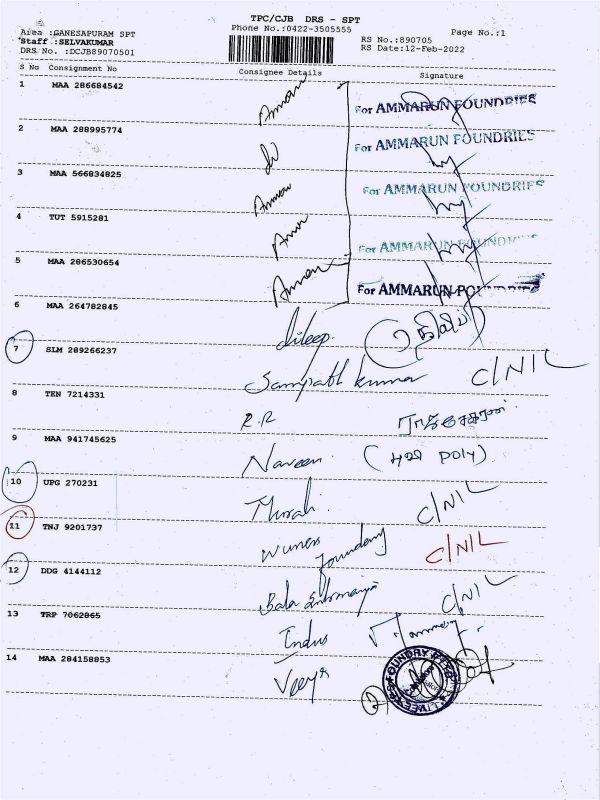 TPC/CJB DRS - SPT
Area :GANESAPURAM SPT
Phone No.:0422-3505555
Page No.:1
Staff :SELVAKUMAR
RS No.:890705
DRS No. :DCJB89070501
RS Date:12-Feb-2022
S No Consignment No Consignee Details Signature
1 MAA 286684542 Amman For AMMARUN FOUNDRIES
2 MAA 288995774 For AMMARUN FOUNDRIES
3 MAA 566834825 Amman For AMMARUN FOUNDRIES
4 TUT 5915281 For AMMARUN FOUNDRIES
5 MAA 286530654 Amman For AMMARUN FOUNDRIES
6 MAA 264782845 dileep.
7 SLM 289266237 Sampath kumar C/NIL
8 TEN 7214331 R.R
9 MAA 941745625 Naveen (poly)
10 UPG 270231 C/NIL
11 TNJ 9201737 foundary C/NIL
12 DDG 4144112 Bala C/NIL
13 TRP 7062865 Indus
14 MAA 284158853
FOUNDRY